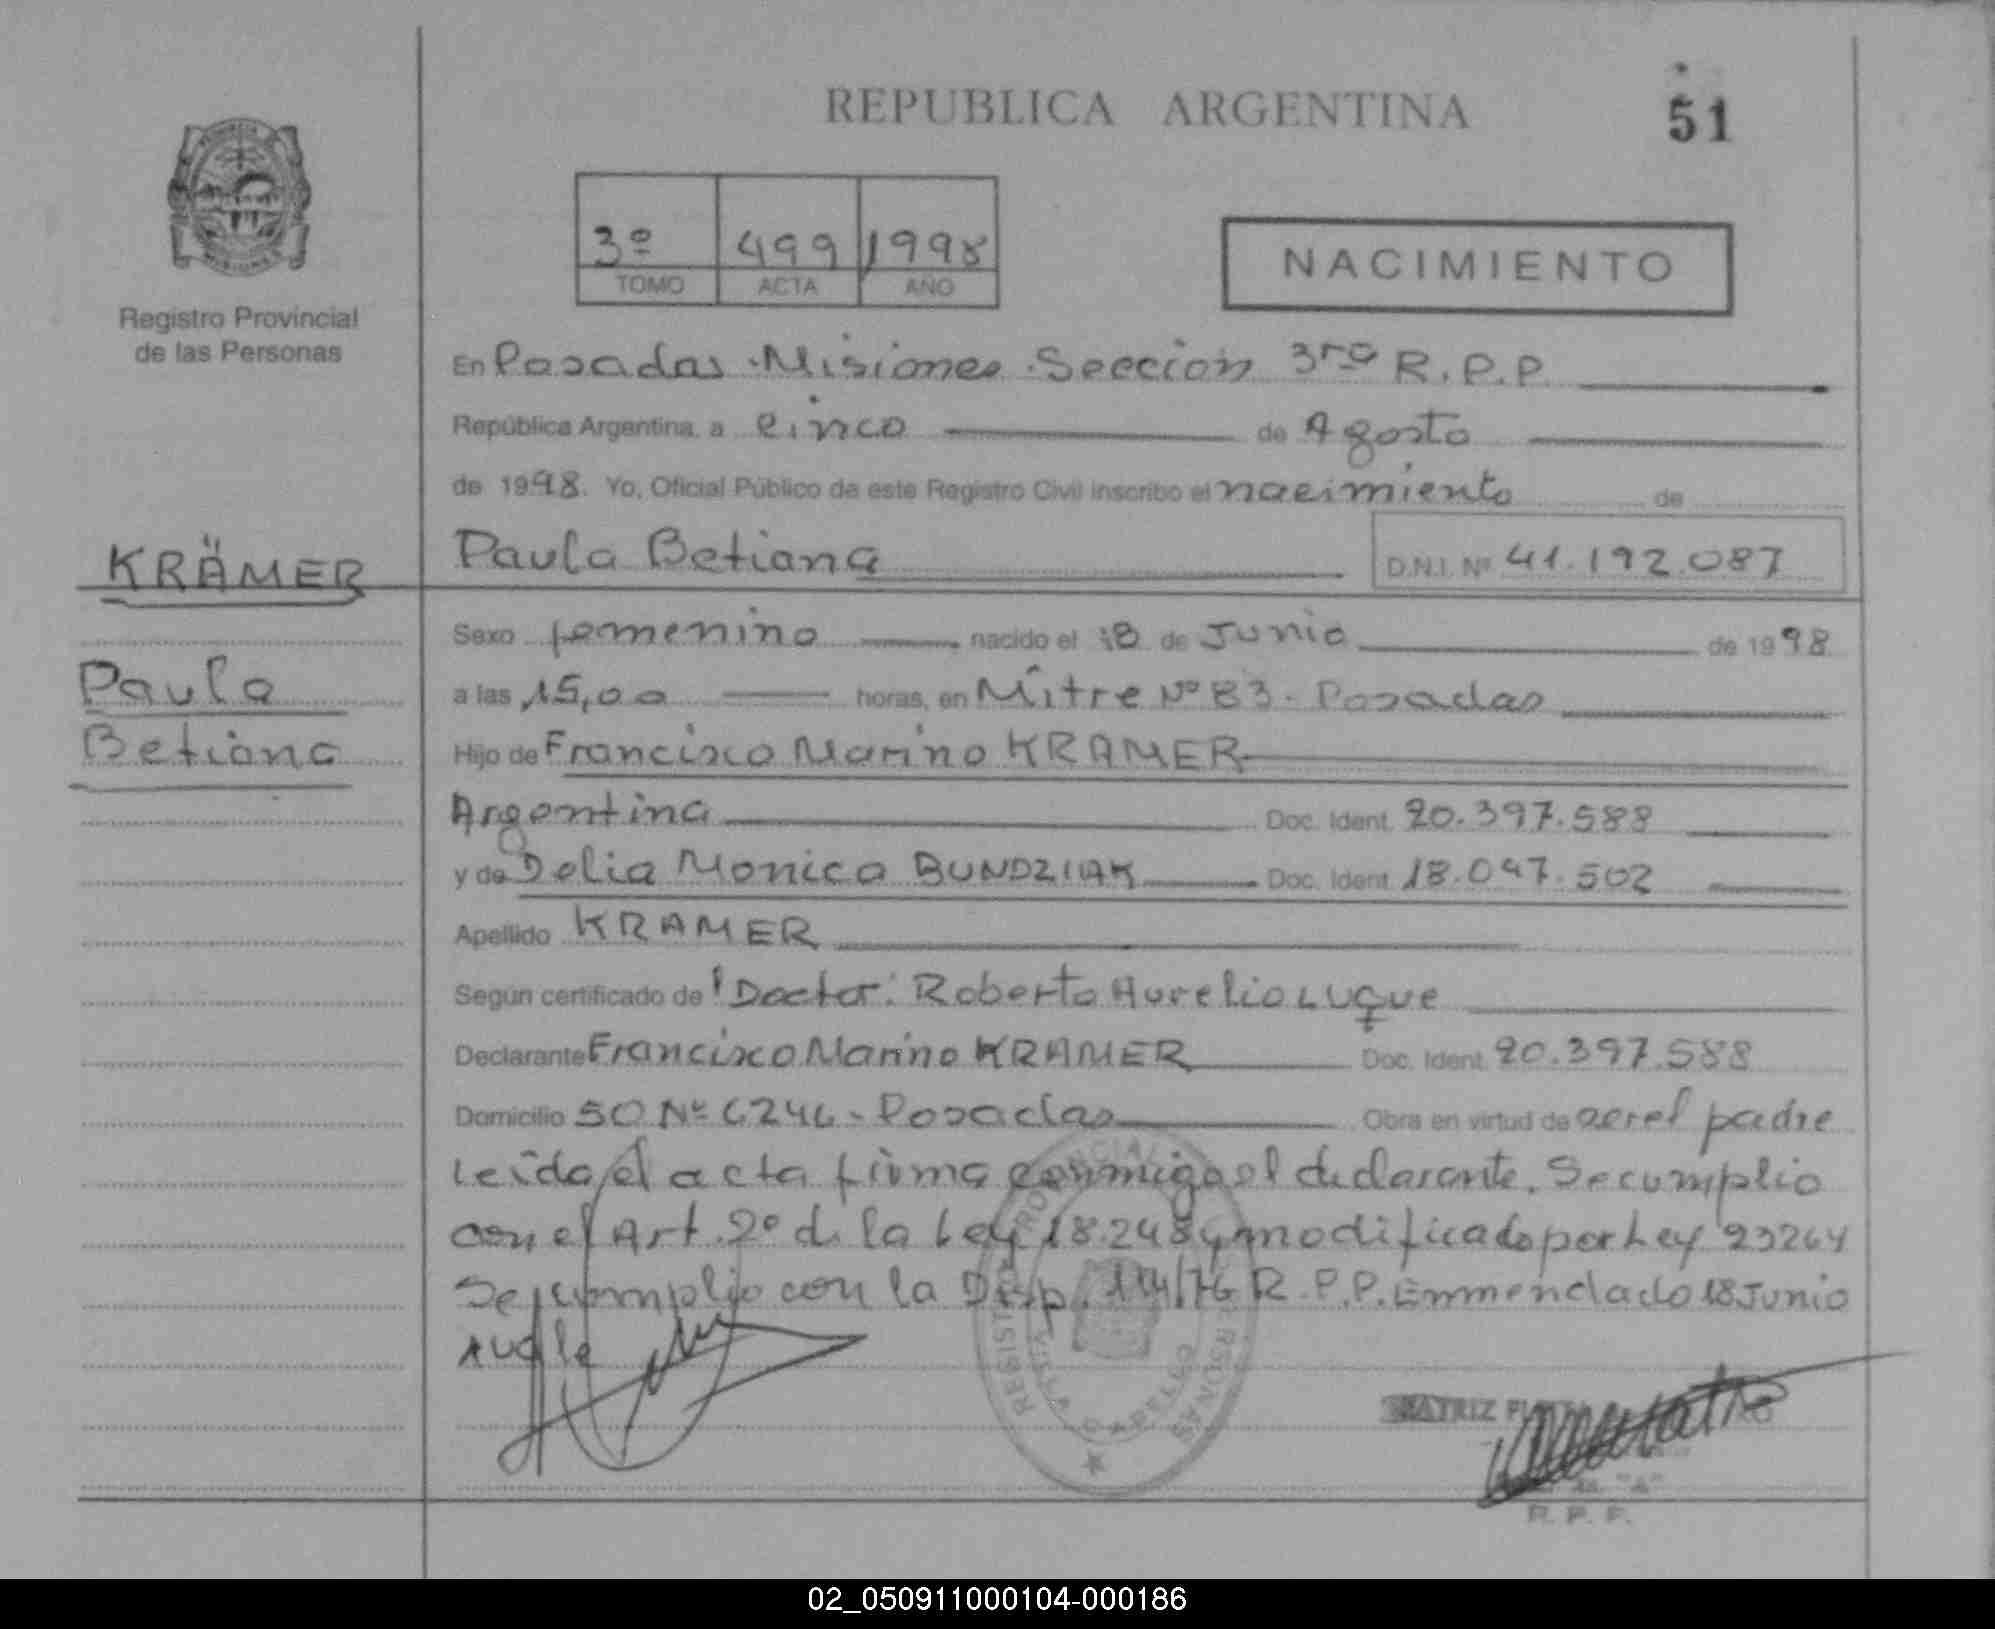 REPUBLICA ARGENTINA
51
3º 499 1998
TOMO ACTA AÑO
NACIMIENTO
Registro Provincial
de las Personas
En Posadas - Misiones - Sección 3ra R.P.P.
República Argentina, a cinco de Agosto
de 1998. Yo, Oficial Público de este Registro Civil inscribo el nacimiento de
KRÄMER
Paula Betiana D.N.I. Nº 41.192.087
Sexo femenino nacido el 18 de Junio de 1998
Paula
a las 15,00 horas, en Mitre Nº 83 - Posadas
Betiana
Hijo de Francisco Marino KRAMER
Argentina Doc. Ident. 20.397.588
y de Delia Monica BUNDZIAK Doc. Ident. 18.047.502
Apellido KRAMER
Según certificado de Doctor: Roberto Aurelio LUQUE
Declarante Francisco Marino KRAMER Doc. Ident. 20.397.588
Domicilio 50 Nº 6246 - Posadas Obra en virtud de ser el padre
Leida el acta firma conmigo el declarante. Se cumplio
con el Art. 2º de la Ley 18.248 y modificado por Ley 23264
Se cumplio con la Disp. 114/76 R.P.P. Enmendado 18 Junio
Vale
REGISTRO PROVINCIAL PERSONAS
R. P. P.
02_050911000104-000186